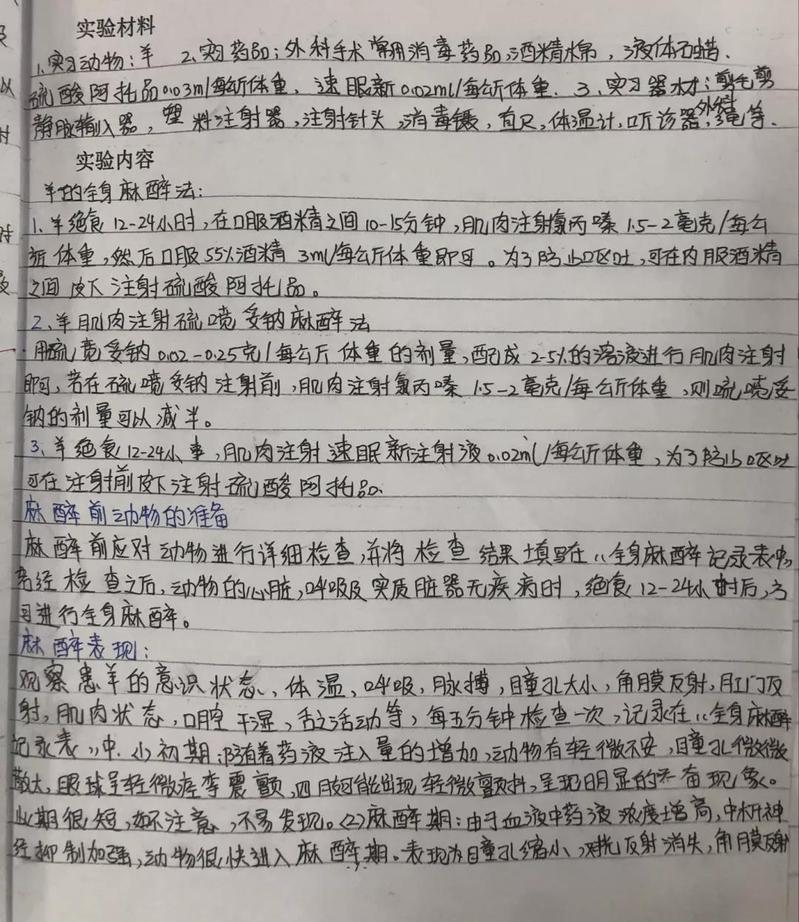 实验材料
1、实习动物:羊 2、实习药品:外科手术常用消毒药品,酒精棉帘,液体石蜡.
硫酸阿托品0.03ml/每公斤体重,速眠新0.02ml/每公斤体重. 3、实习器材:剪毛剪
静脉输入器,塑料注射器,注射针头,消毒镊,直尺,体温计,听诊器,绳等.
实验内容
羊的全身麻醉法:
1.羊绝食12-24小时,在口服酒精之间10-15分钟,肌肉注射氯丙嗪1.5-2毫克/每公
斤体重,然后口服55%酒精3ml/每公斤体重即可。为了防止呕吐,可在内服酒精
之间皮下注射硫酸阿托品。
2、羊肌肉注射硫喷妥钠麻醉法
用硫喷妥钠0.02-0.25克/每公斤体重的剂量,配成2-5%的溶液进行肌肉注射
即可,若在硫喷妥钠注射前,肌肉注射氯丙嗪1.5-2毫克/每公斤体重,则硫喷妥
钠的剂量可以减半。
3、羊绝食12-24小事,肌肉注射速眠新注射液0.02ml/每公斤体重,为了防止呕吐
可在注射前皮下注射硫酸阿托品.
麻醉前动物的准备
麻醉前应对动物进行详细检查,并将检查结果填写在"全身麻醉记录表中"
经检查之后,动物的心脏,呼吸及实质脏器无疾病时,绝食12-24小时后,方
可进行全身麻醉。
麻醉表现:
观察患羊的意识状态、体温、呼吸,脉搏,瞳孔大小,角膜反射,肛门反
射,肌肉状态,口腔干湿,舌之活动等,每五分钟检查一次,记录在"全身麻醉
记录表"中.(1)初期:随着药液注入量的增加,动物有轻微不安,瞳孔微微
散大,眼球呈轻微痉挛震颤,四肢可能出现轻微颤抖,呈现明显的兴奋现象。
此期很短,如不注意,不易发现。(2)麻醉期:由于血液中药液浓度增高,中枢神
经抑制加强,动物很快进入麻醉期.表现为瞳孔缩小,对光反射消失,角膜反射